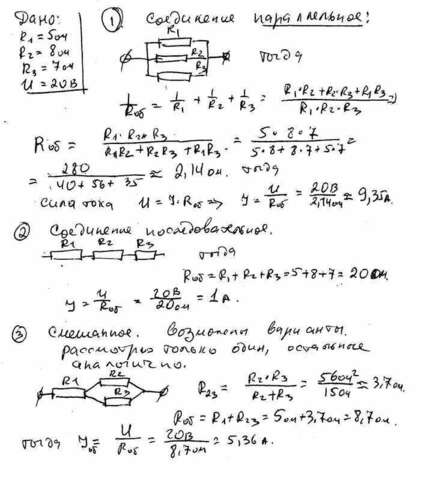 Дано:
R1 = 5 ом
R2 = 8 ом
R3 = 7 ом
U = 20 В
① Соединение параллельное!
R1
R2
R3
тогда
1/Rоб = 1/R1 + 1/R2 + 1/R3 = (R1·R2+R2·R3+R1R3)/(R1·R2·R3) ⇒
Rоб = (R1·R2·R3)/(R1R2 + R2R3 + R1R3) = (5·8·7)/(5·8+8·7+5·7) =
= 280/(40+56+35) ≈ 2,14 ом. тогда
сила тока U = У·Rоб ⇒ У = U/Rоб = 20В/2,14ом ≈ 9,35А.
② Соединение последовательное.
R1 R2 R3
тогда
Rоб = R1 + R2 + R3 = 5+8+7 = 20 ом.
У = U/Rоб = 20В/20ом = 1А.
③ Смешанное. Возможны варианты.
рассмотрю только один, остальные
аналогично.
R1
R2
R3
R23 = (R2·R3)/(R2+R3) = 56ом²/15ом ≈ 3,7ом.
Rоб = R1 + R23 = 5ом+3,7ом = 8,7ом.
тогда Уоб = U/Rоб = 20В/8,7ом = 5,36А.